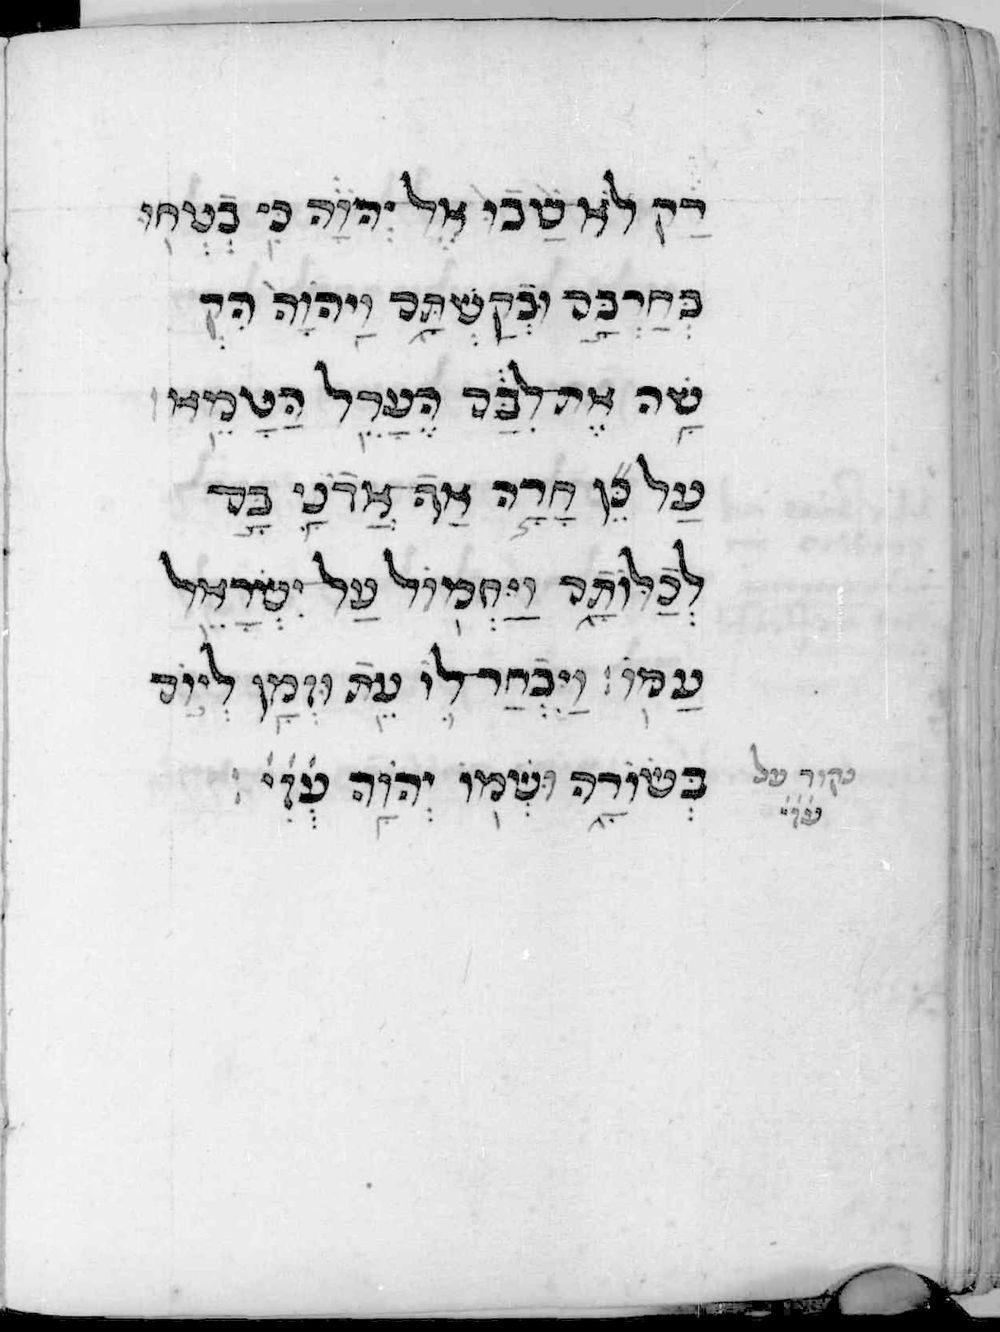 רַק לֹא שָׁבוּ אֶל יְהוָֹה כִּי בָּטְחוּ
בְּחַרְבָּם וּבְקַשְׁתָּם וַיהוָֹה הִקְ
שָׁה אֶת לִבָּם הֶעָרֵל הַטָּמֵא
עַל כֵּן חָרָה אַף אֲדֹנָי בָּם
לְכַלּוֹתָם וַיַּחְמוֹל עַל יִשְׂרָאֵל
עַמּוֹ׃ וַיִּבְחַר לוֹ עֵת וּזְמָן לְיוֹם
בְּשׂוֹרָה וּשְׁמוֹ יְהוָֹה
נקוד על